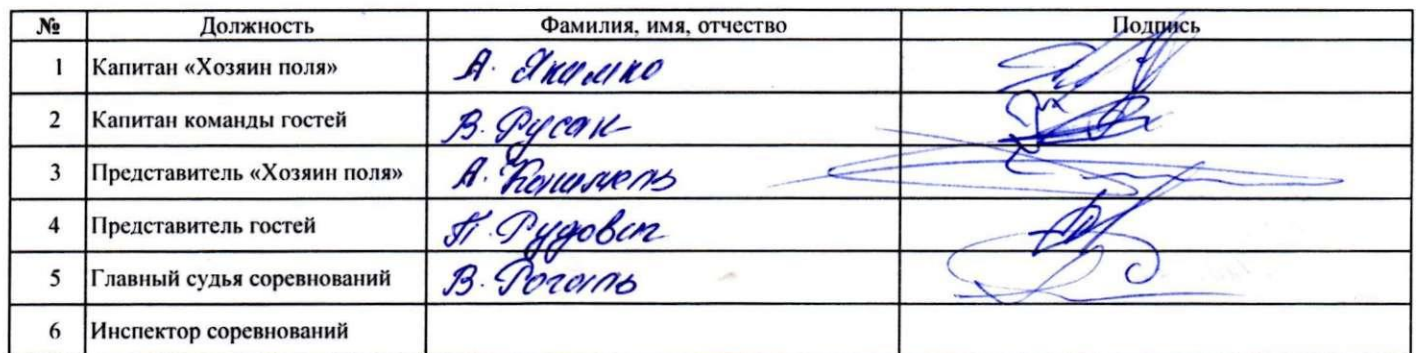 № Должность Фамилия, имя, отчество Подпись
1 Капитан «Хозяин поля» А. Якимко
2 Капитан команды гостей В. Русак
3 Представитель «Хозяин поля» А.
4 Представитель гостей П.
5 Главный судья соревнований В. Рогаль
6 Инспектор соревнований